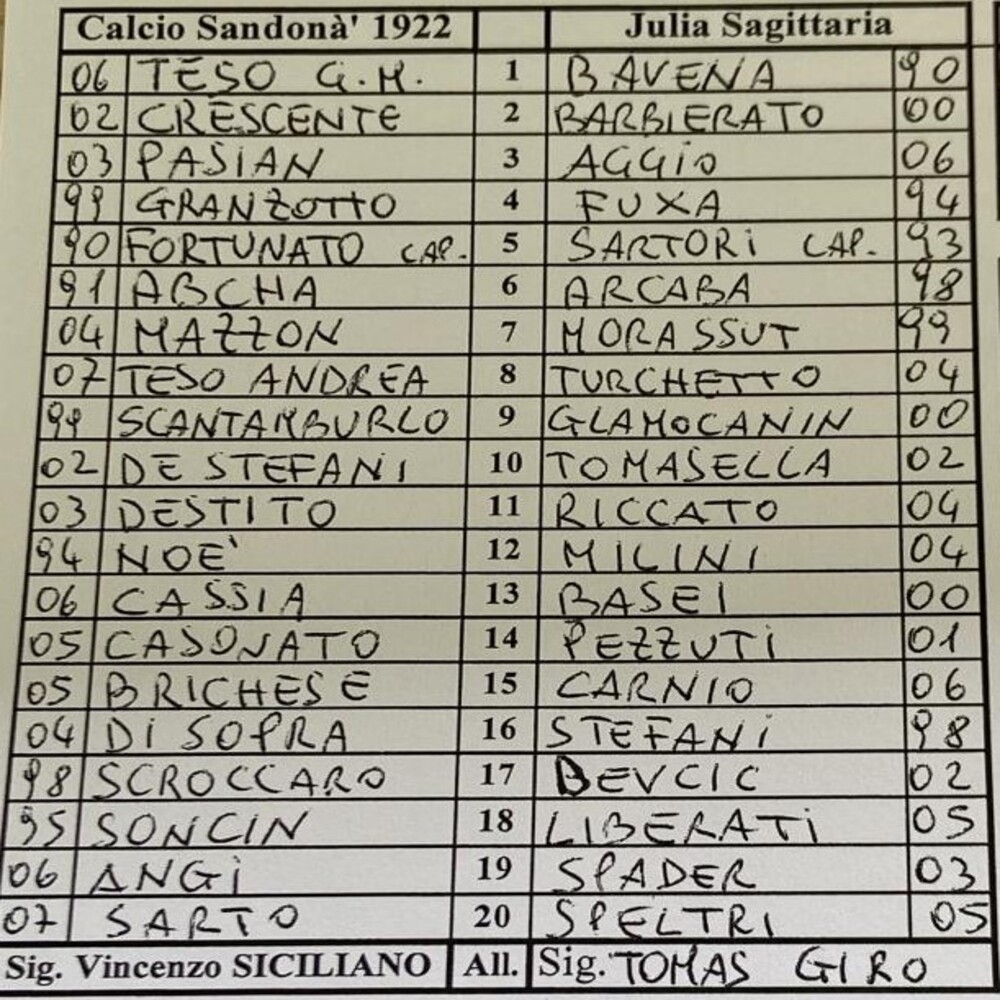 Calcio Sandonà' 1922 Julia Sagittaria
06 TESO G.M. 1 BAVENA 90
02 CRESCENTE 2 BARBIERATO 00
03 PASIAN 3 AGGIO 06
99 GRANZOTTO 4 FUXA 94
90 FORTUNATO CAP. 5 SARTORI CAP. 93
91 ABCHA 6 ARCABA 98
04 MAZZON 7 MORASSUT 99
07 TESO ANDREA 8 TURCHETTO 04
99 SCANTAMBURLO 9 GLAMOCANIN 00
02 DE STEFANI 10 TOMASELLA 02
03 DESTITO 11 RICCATO 04
94 NOE' 12 MILINI 04
06 CASSIA 13 BASEI 00
05 CASONATO 14 PEZZUTI 01
05 BRICHESE 15 CARNIO 06
04 DI SOPRA 16 STEFANI 98
98 SCROCCARO 17 BEVCIC 02
95 SONCIN 18 LIBERATI 05
06 ANGI 19 SPADER 03
07 SARTO 20 SPELTRI 05
Sig. Vincenzo SICILIANO All. Sig. TOMAS GIRO